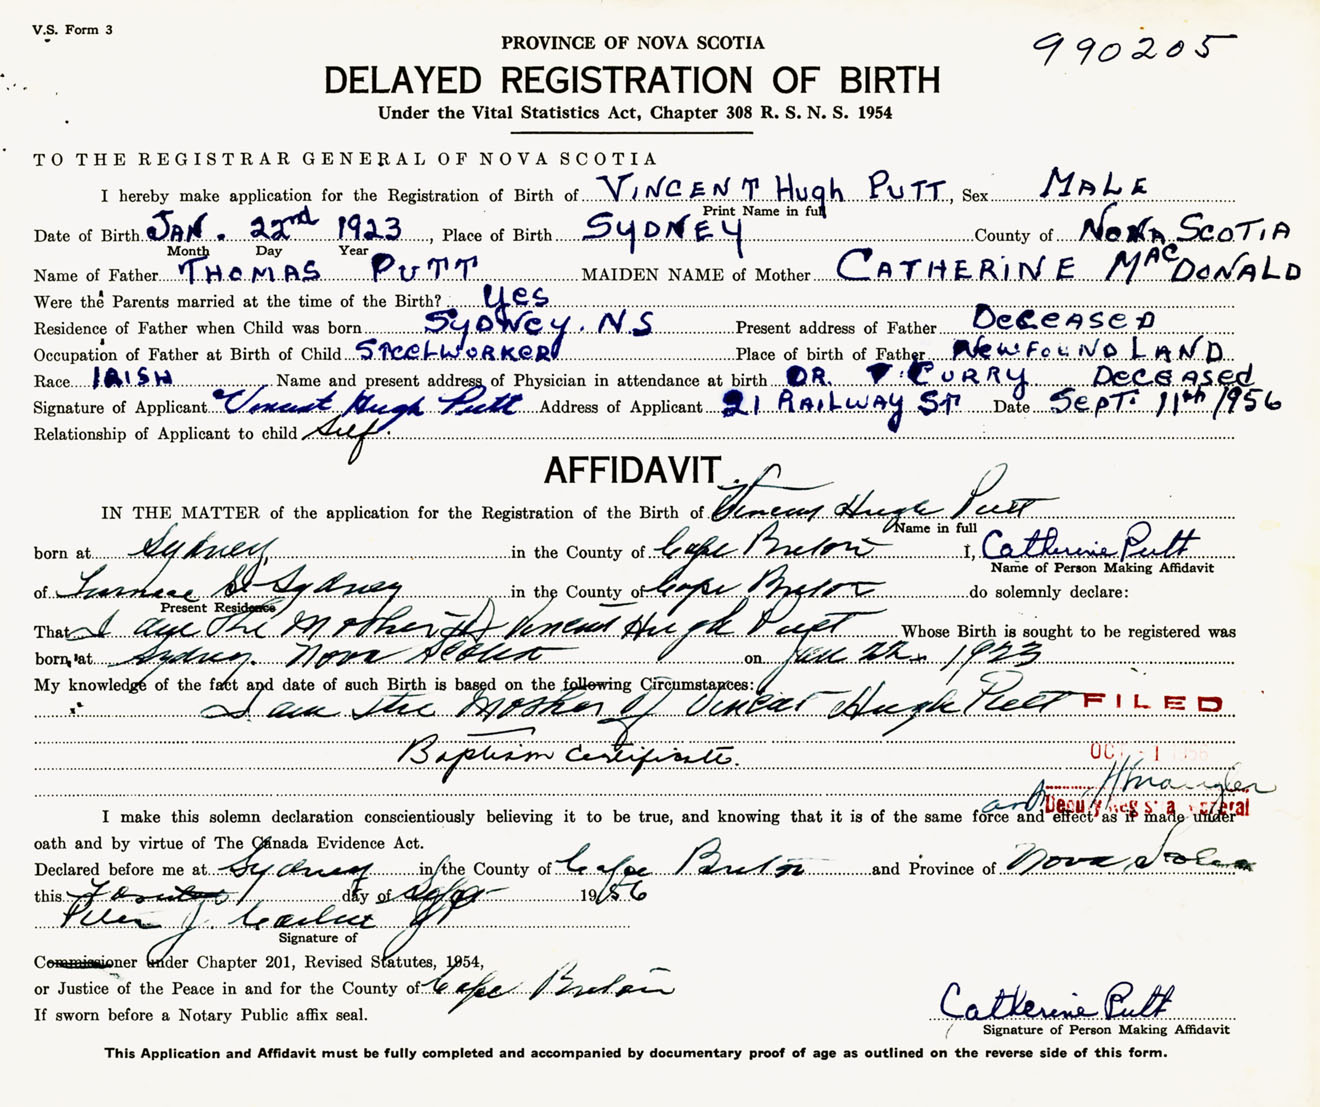 V.S. Form 3
990205
PROVINCE OF NOVA SCOTIA
DELAYED REGISTRATION OF BIRTH
Under the Vital Statistics Act, Chapter 308 R. S. N. S. 1954
TO THE REGISTRAR GENERAL OF NOVA SCOTIA
I hereby make application for the Registration of Birth of VINCENT Hugh PUTT, Sex MALE
Print Name in full
Date of Birth JAN. 22nd 1923, Place of Birth SYDNEY County of NOVA SCOTIA
Month Day Year
Name of Father THOMAS PUTT MAIDEN NAME of Mother CATHERINE MacDONALD
Were the Parents married at the time of the Birth? Yes
Residence of Father when Child was born SYDNEY. N.S Present address of Father DECEASED
Occupation of Father at Birth of Child STEELWORKER Place of birth of Father NEWFOUNDLAND
Race IRISH Name and present address of Physician in attendance at birth DR. CURRY DECEASED
Signature of Applicant Vincent Hugh Putt Address of Applicant 21 RAILWAY ST Date SEPT. 11th 1956
Relationship of Applicant to child Self.
AFFIDAVIT
IN THE MATTER of the application for the Registration of the Birth of Vincent Hugh Putt
Name in full
born at Sydney, in the County of Cape Breton I, Catherine Putt
Name of Person Making Affidavit
of St Sydney in the County of Cape Breton do solemnly declare:
Present Residence
That I am the Mother of Vincent Hugh Putt Whose Birth is sought to be registered was
born at Sydney. Nova Scotia on Jan 22 1923
My knowledge of the fact and date of such Birth is based on the following Circumstances:
I am the Mother of Vincent Hugh Putt FILED
Baptism Certificate. OCT - 1 1956
and Deputy Registrar General
I make this solemn declaration conscientiously believing it to be true, and knowing that it is of the same force and effect as if made under
oath and by virtue of The Canada Evidence Act.
Declared before me at Sydney in the County of Cape Breton and Province of Nova Scotia
this day of Sept 1956
Peter J.
Signature of
Commissioner under Chapter 201, Revised Statutes, 1954,
or Justice of the Peace in and for the County of Cape Breton
If sworn before a Notary Public affix seal.
Catherine Putt
Signature of Person Making Affidavit
This Application and Affidavit must be fully completed and accompanied by documentary proof of age as outlined on the reverse side of this form.